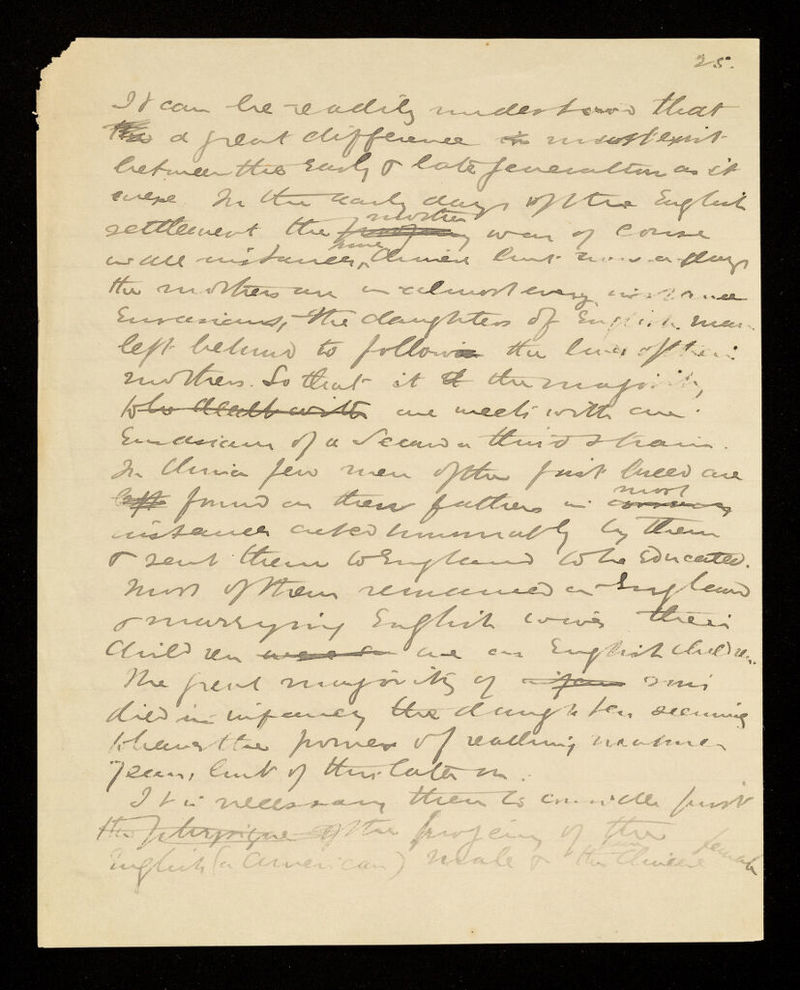 25.
It can be readily understood that
the a great difference in must exist
between the Early & late generation as it
were. In the early days of the English
settlement the progeny mother was of course
in all instances, pure Chinese but now a days
the mothers are in almost every instance
Eurasians, the daughters of English men
left behind to follow in the lines of their
mothers. So that it it the majority,
to be dealt with one meets with are
Eurasians of a second or third strain.
In China few men of the first breed are
left found as their fathers in most
instances acted honourably by them
& sent them to England to be Educated.
Most of them remained in England
& marrying English wives their
children are as English children.
The great majority of sons
died in infancy the daughters seeming
to have the power of reaching mature
years, but of this later on.
It is necessary then to consider first
the physique of the progeny of the
English (or American) male & the pure Chinese female